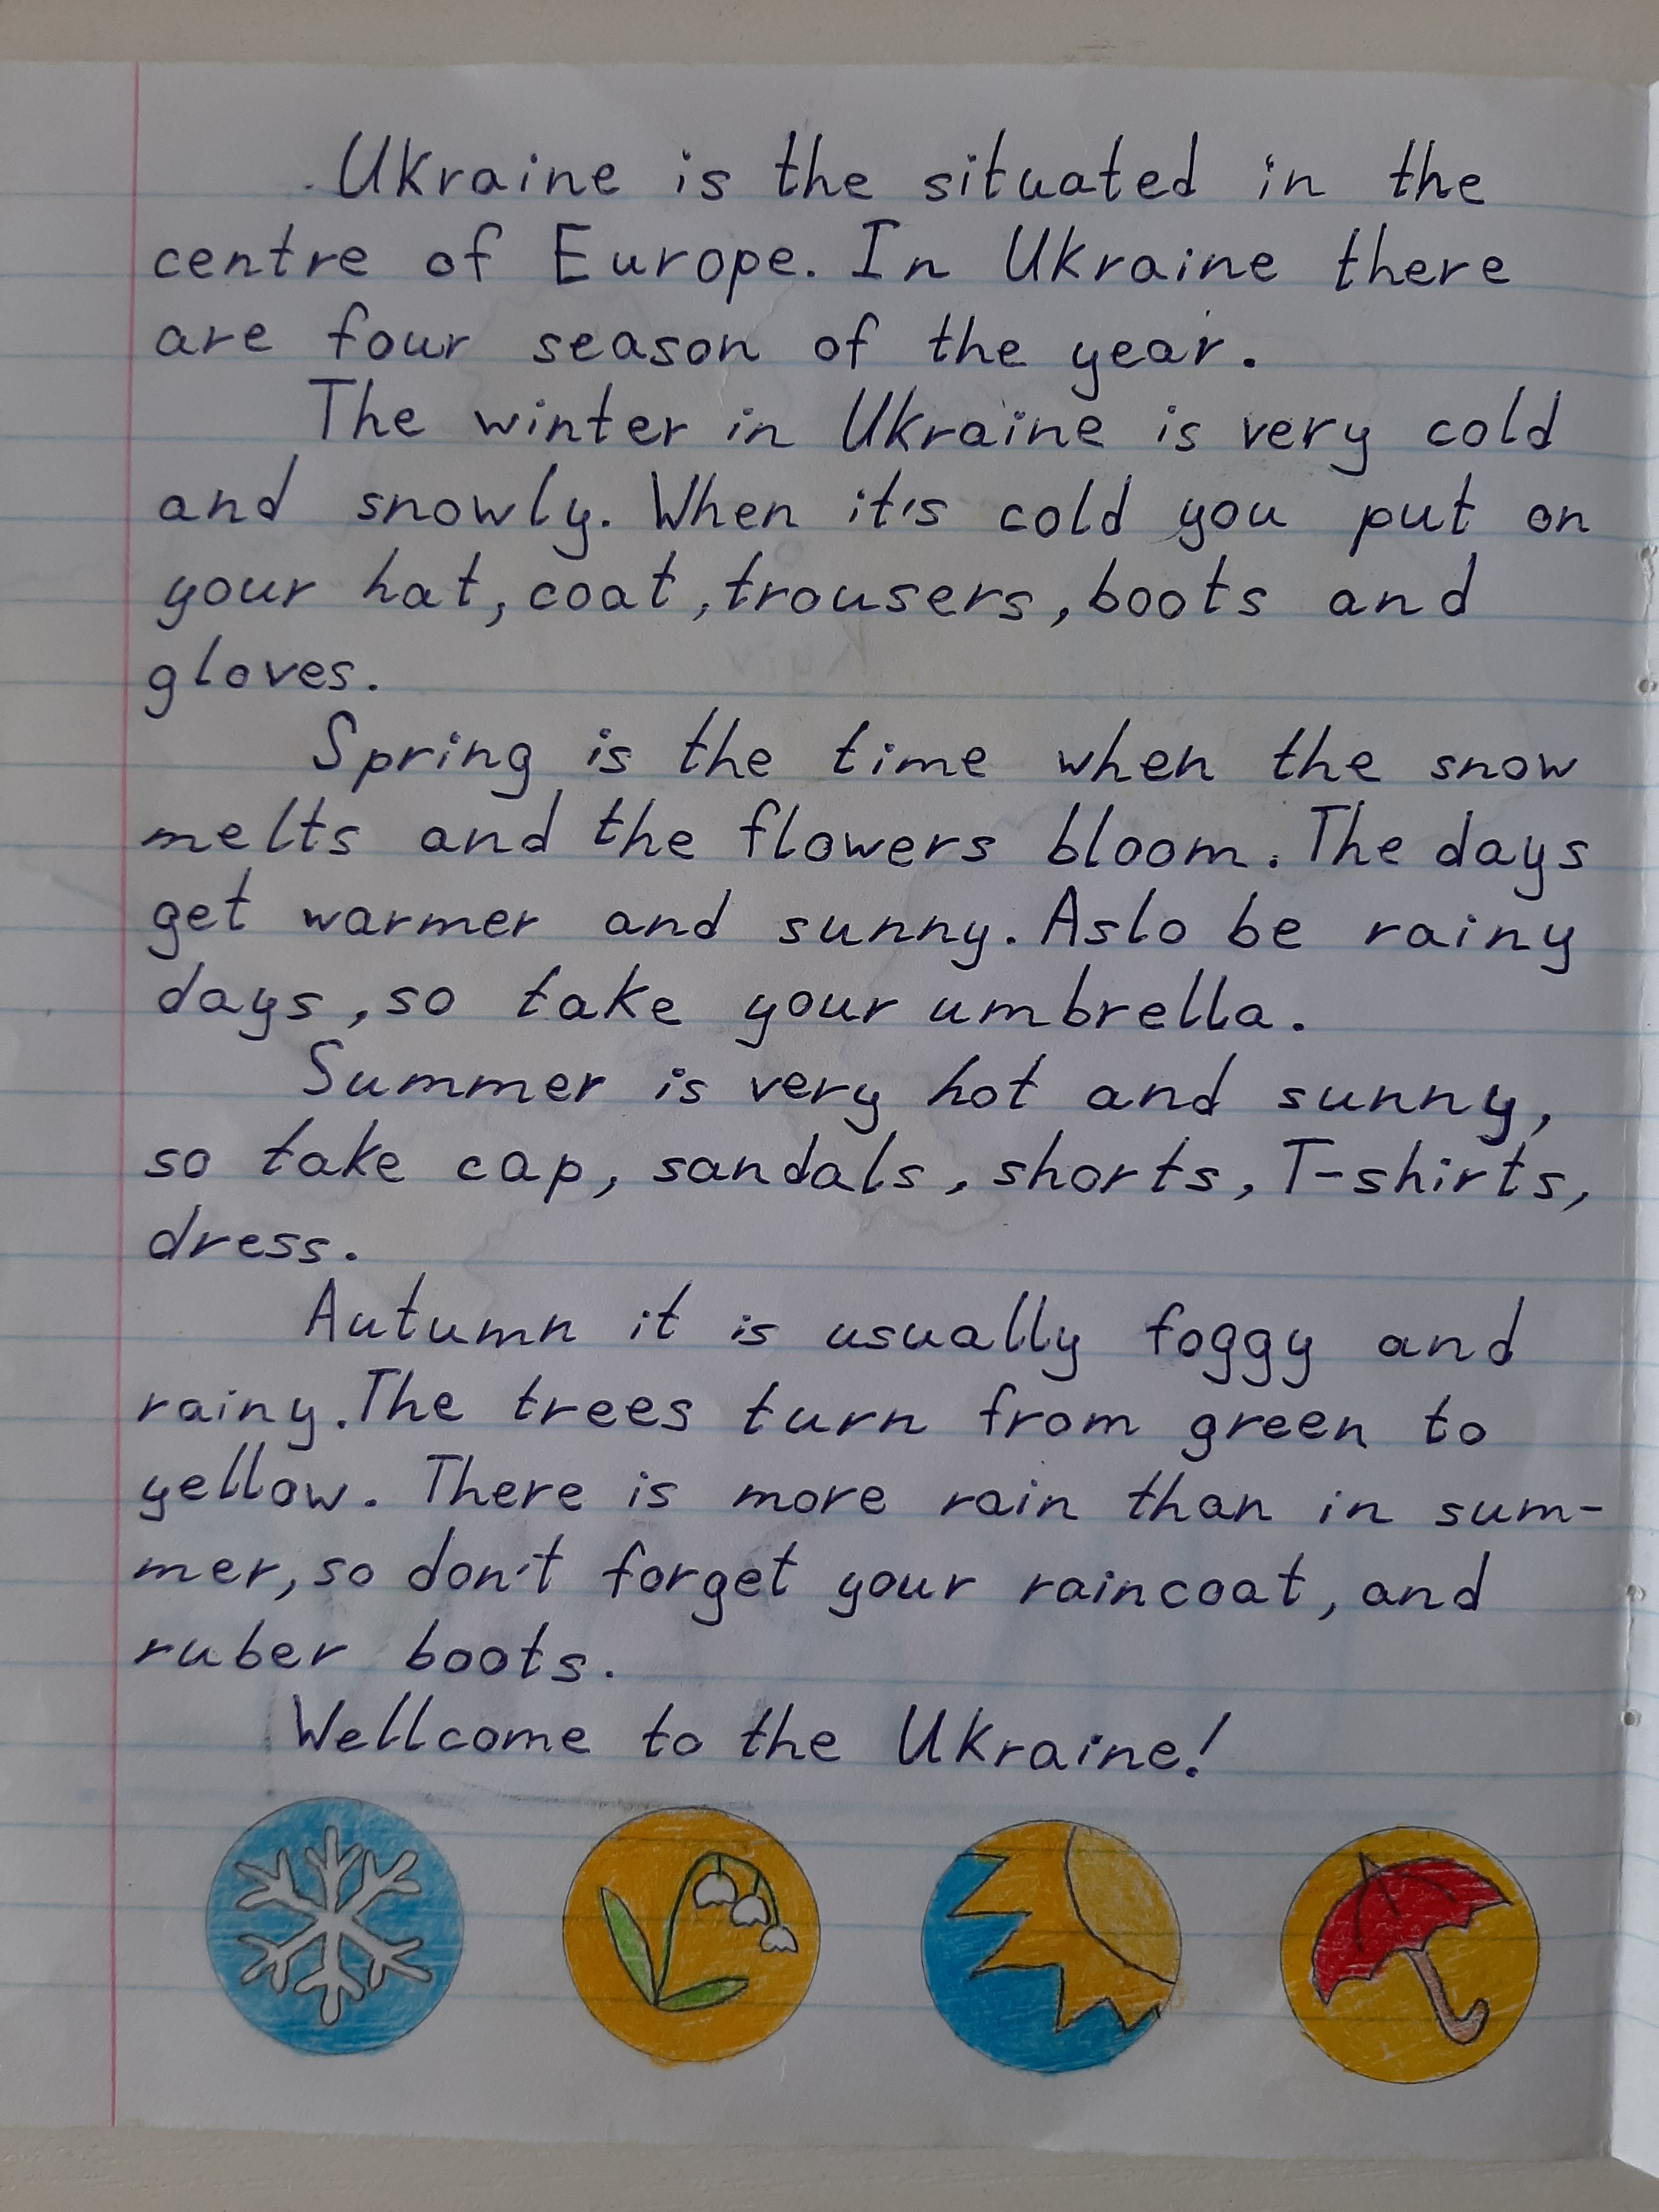 Ukraine is the situated in the
centre of Europe. In Ukraine there
are four season of the year.
The winter in Ukraine is very cold
and snowly. When it's cold you put on
your hat, coat, trousers, boots and
gloves.
Spring is the time when the snow
melts and the flowers bloom. The days
get warmer and sunny. Aslo be rainy
days, so take your umbrella.
Summer is very hot and sunny,
so take cap, sandals, shorts, T-shirts,
dress.
Autumn it is usually foggy and
rainy. The trees turn from green to
yellow. There is more rain than in sum-
mer, so don't forget your raincoat, and
ruber boots.
Wellcome to the Ukraine!